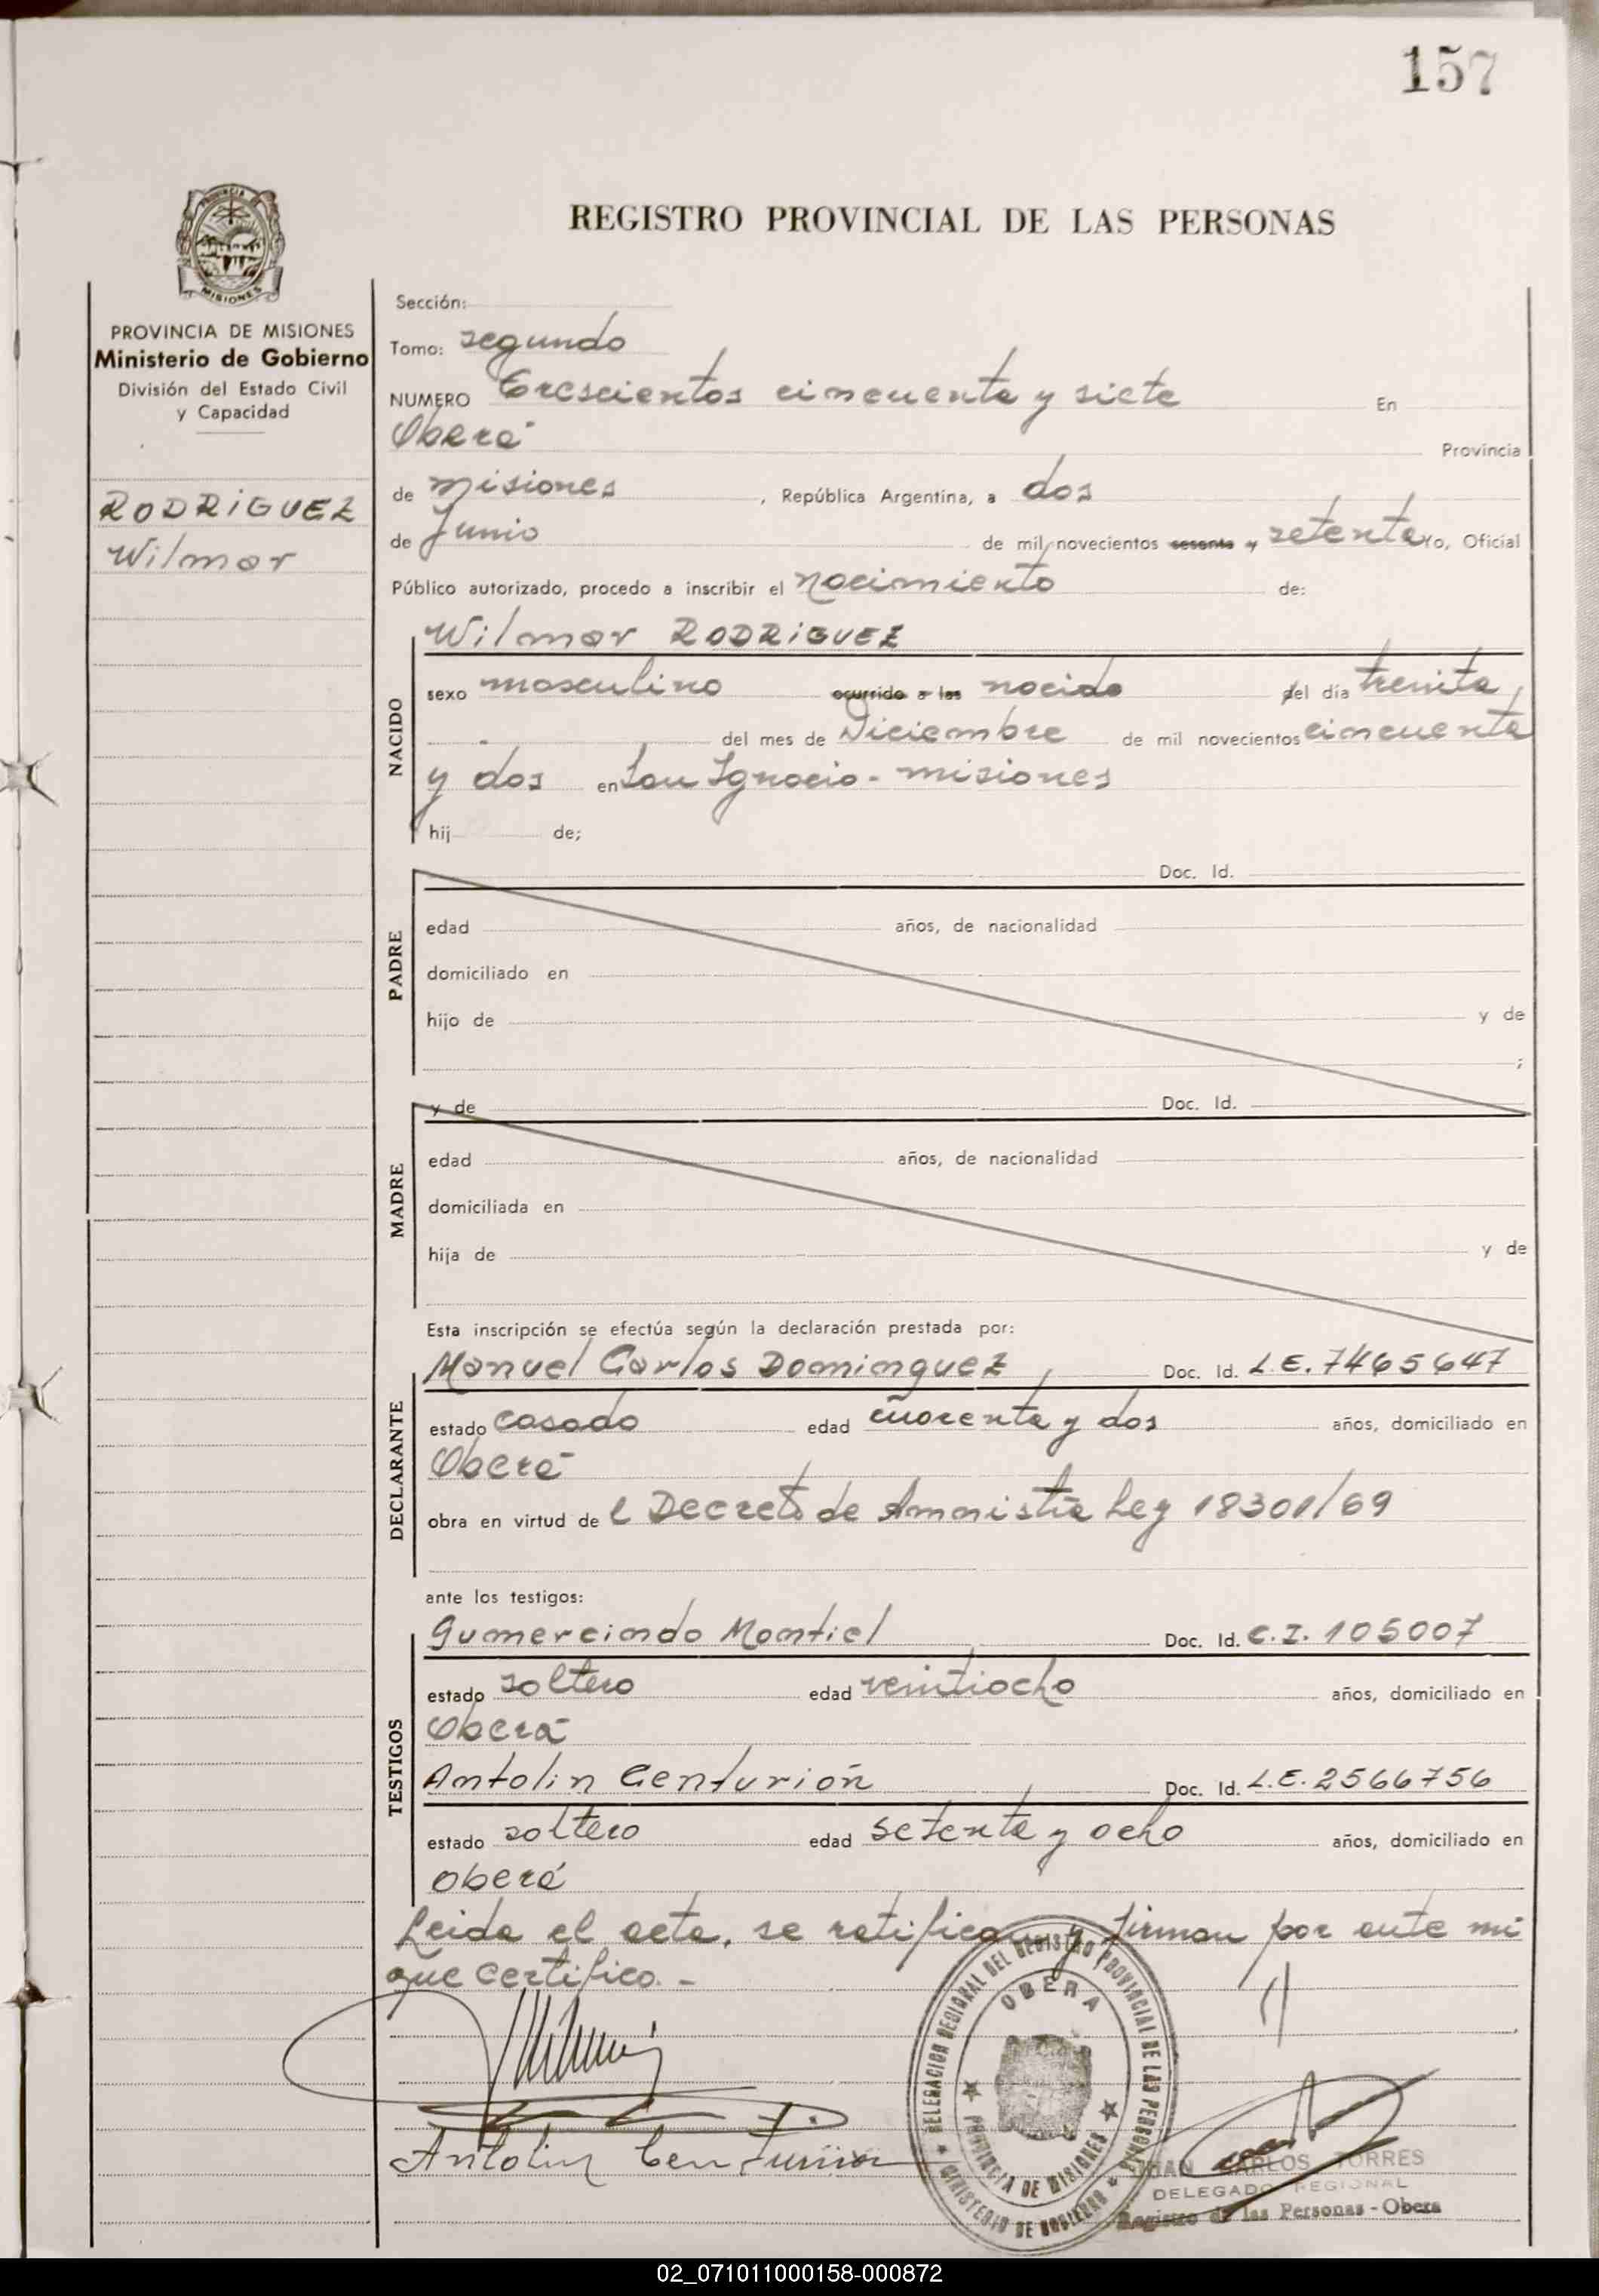 157
REGISTRO PROVINCIAL DE LAS PERSONAS
PROVINCIA DE MISIONES
Ministerio de Gobierno
División del Estado Civil
y Capacidad
RODRIGUEZ
Wilmar
Sección:
Tomo: segundo
NUMERO Trescientos cincuenta y siete En
Oberá Provincia
de Misiones, República Argentina, a dos
de Junio de mil novecientos sesenta y setenta Yo, Oficial
Público autorizado, procedo a inscribir el nacimiento de:
NACIDO
Wilmar RODRIGUEZ
sexo masculino ocurrido a las nacido el día treinta
del mes de Diciembre de mil novecientos cincuenta
y dos en San Ignacio - Misiones
hij de;
PADRE
Doc. Id.
edad años, de nacionalidad
domiciliado en
hijo de y de
;
MADRE
y de Doc. Id.
edad años, de nacionalidad
domiciliada en
hija de y de
Esta inscripción se efectúa según la declaración prestada por:
DECLARANTE
Manuel Carlos Dominguez Doc. Id. L.E. 7465647
estado casado edad cuarenta y dos años, domiciliado en
Oberá
obra en virtud de l Decreto de Amnistía Ley 18301/69
ante los testigos:
TESTIGOS
Gumercindo Montiel Doc. Id. C.I. 105007
estado soltero edad veintiocho años, domiciliado en
Oberá
Antolin Centurión Doc. Id. L.E. 2566756
estado soltero edad setenta y ocho años, domiciliado en
Oberá
Leida el acta, se ratifican y firman por ante mi
que certifico. -
Antolin Centurion
DELEGACION REGIONAL DEL REGISTRO PROVINCIAL DE LAS PERSONAS
OBERA
PROVINCIA DE MISIONES
MINISTERIO DE GOBIERNO
JUAN CARLOS TORRES
DELEGADO REGIONAL
Registro de las Personas - Obera
02_071011000158-000872